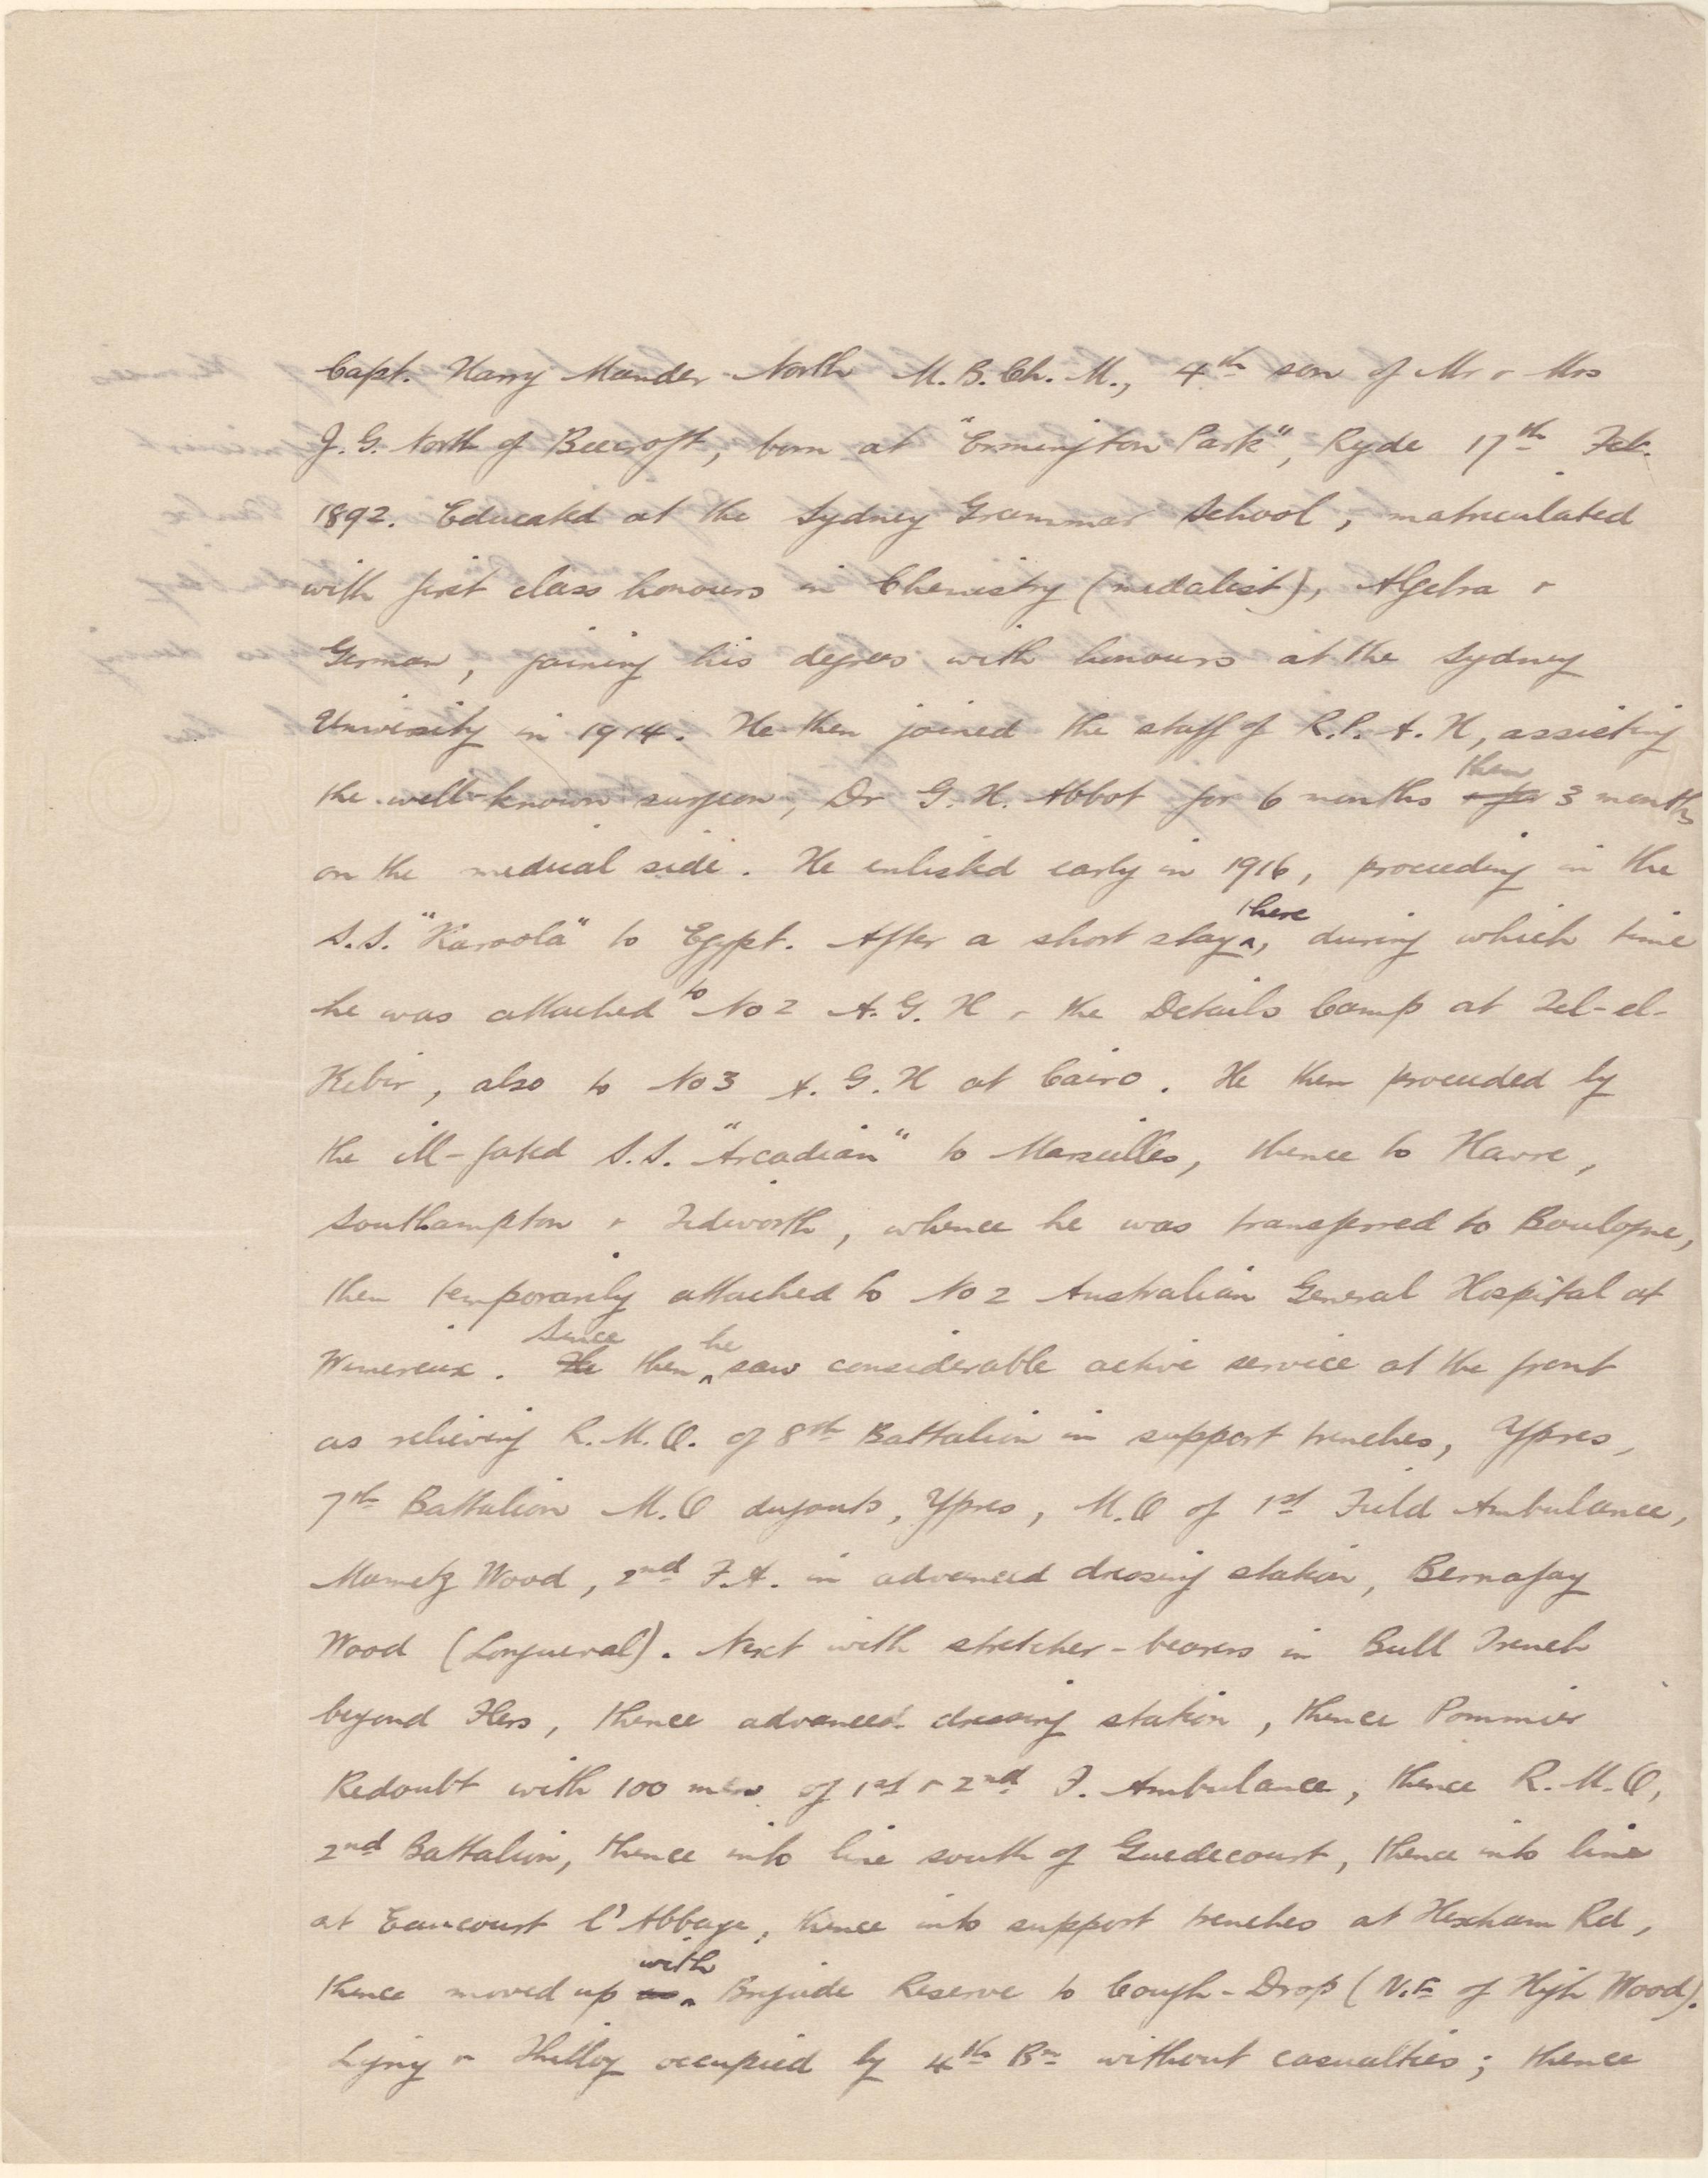 Capt. Harry Mander North M.B.Ch.M., 4th son of Mr & Mrs
J. G. North of Beecroft, born at "Ermington Park", Ryde 17th Feb.
1892. Educated at the Sydney Grammar School, matriculated
with first class honours in Chemistry (medalist), Algebra &
German, gaining his degree with honours at the Sydney
University in 1914. He then joined the staff of R.P.A.H, assisting
the well-known surgeon, Dr G. H. Abbot for 6 months & for then 3 months
on the medical side. He enlisted early in 1916, proceeding in the
S.S. "Karoola" to Egypt. After a short stay there, during which time
he was attached to No 2 A.G.H & the Details Camp at Tel-el-
Kebir, also to No 3 A.G.H at Cairo. He then proceeded by
the ill-fated S.S. "Arcadian" to Marseilles, thence to Havre,
Southampton & Tidworth, whence he was transferred to Boulogne,
then temporarily attached to No 2 Australian General Hospital at
Wimereux. He Since then he saw considerable active service at the front
as relieving R.M.O. of 8th Battalion in support trenches, Ypres,
7th Battalion M.O dugouts, Ypres, M.O of 1st Field Ambulance,
Mametz Wood, 2nd F.A. in advanced dressing station, Bernafay
Wood (Longueval). Next with stretcher-bearers in Bull Trench
beyond Flers, thence advanced dressing station, thence Pommier
Redoubt with 100 men of 1st & 2nd F. Ambulance, thence R.M.O,
2nd Battalion, thence into line south of Guedecourt, thence into line
at Eaucourt l'Abbaye, thence into support trenches at Hexham Rd,
thence moved up as with Brigade Reserve to Cough-Drop (N.E of High Wood).
Ligny & Thilloy occupied by 4th Bn without casualties; thence